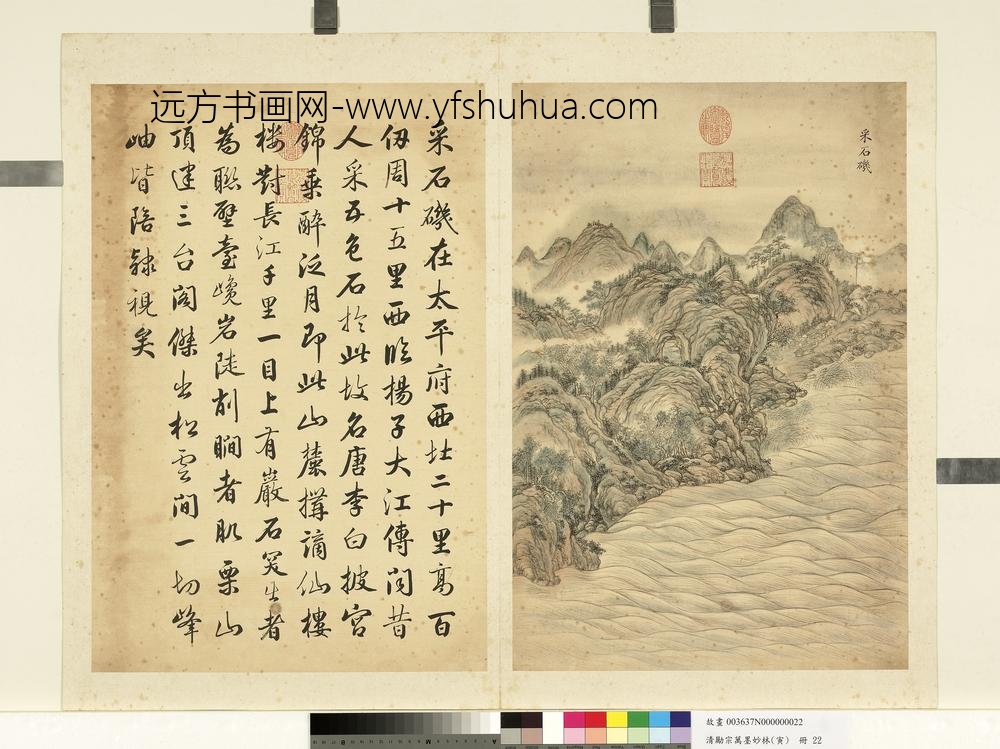 远方书画网-www.yfshuhua.com
采石磯
采石磯在太平府西北二十里高百
仭周十五里西臨楊子大江傳聞昔
人采五色石於此故名唐李白披宮
錦乘醉泛月即此山麓搆謫仙樓
樓對長江千里一目上有巖石突出者
為聯壁臺巉岩陡削瞷者肌栗山
頂建三台閣傑出松雲間一切峰
岫皆陪隸視矣
故畫 003637N000000022
清勵宗萬墨妙林(寅) 冊 22